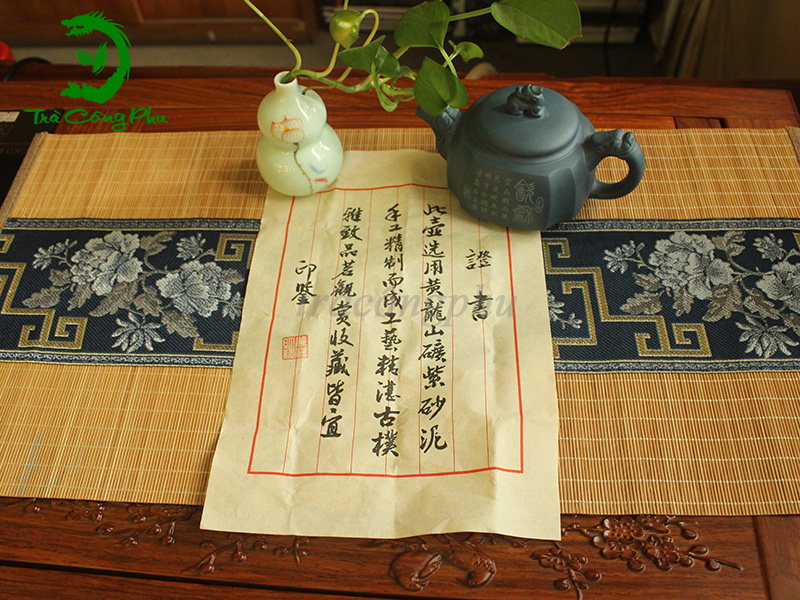 Trà Công Phu
證書
此壺选用黄龍山礦紫砂泥
手工精制而成工藝精湛古樸
雅致品茗觀赏收藏皆宜
印鑒
tracongphu